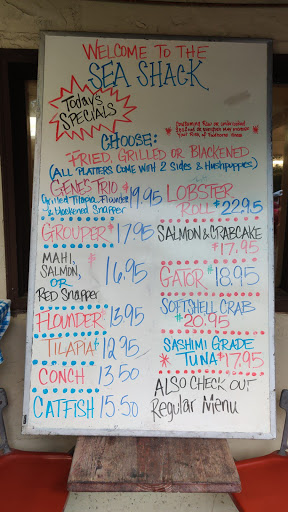 WELCOME TO THE
SEA SHACK
Today's
SPECIALS
* Consuming Raw or undercooked *
CHOOSE:
FRIED, GRILLED OR BLACKENED
(ALL PLATTERS COME WITH 2 SIDES & Hushpuppies)
GENE'S TRIO $19.95
Grilled Tilapia, Flounder
& Blackened Snapper
GROUPER $17.95
MAHI,
SALMON,
OR
RED SNAPPER
16.95
FLOUNDER $13.95
TILAPIA $12.95
CONCH 13.50
CATFISH 15.50
LOBSTER
ROLL $22.95
SALMON & CRABCAKE
$17.95
GATOR $18.95
SOFTSHELL CRAB
$20.95
SASHIMI GRADE
* TUNA $17.95
ALSO CHECK OUT
Regular Menu